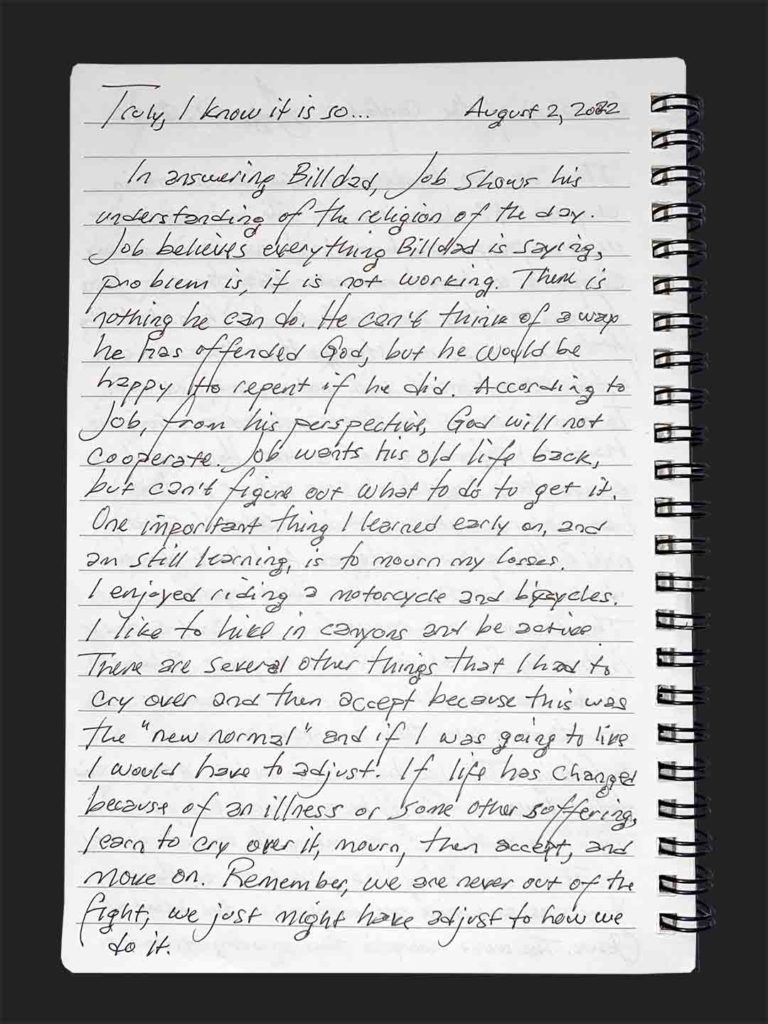 Truly, I know it is so... August 2, 2022
In answering Billdad, Job shows his
understanding of the religion of the day.
Job believes everything Billdad is saying,
problem is, it is not working. There is
nothing he can do. He can't think of a way
he has offended God, but he would be
happy to repent if he did. According to
Job, from his perspective, God will not
cooperate. Job wants his old life back,
but can't figure out what to do to get it.
One important thing I learned early on, and
am still learning, is to mourn my losses.
I enjoyed riding a motorcycle and bicycles.
I like to hike in canyons and be active
There are several other things that I had to
cry over and then accept because this was
the "new normal" and if I was going to live
I would have to adjust. If life has changed
because of an illness or some other soffering,
learn to cry over it, mourn, then accept, and
move on. Remember, we are never out of the
fight, we just might have adjust to how we
do it.